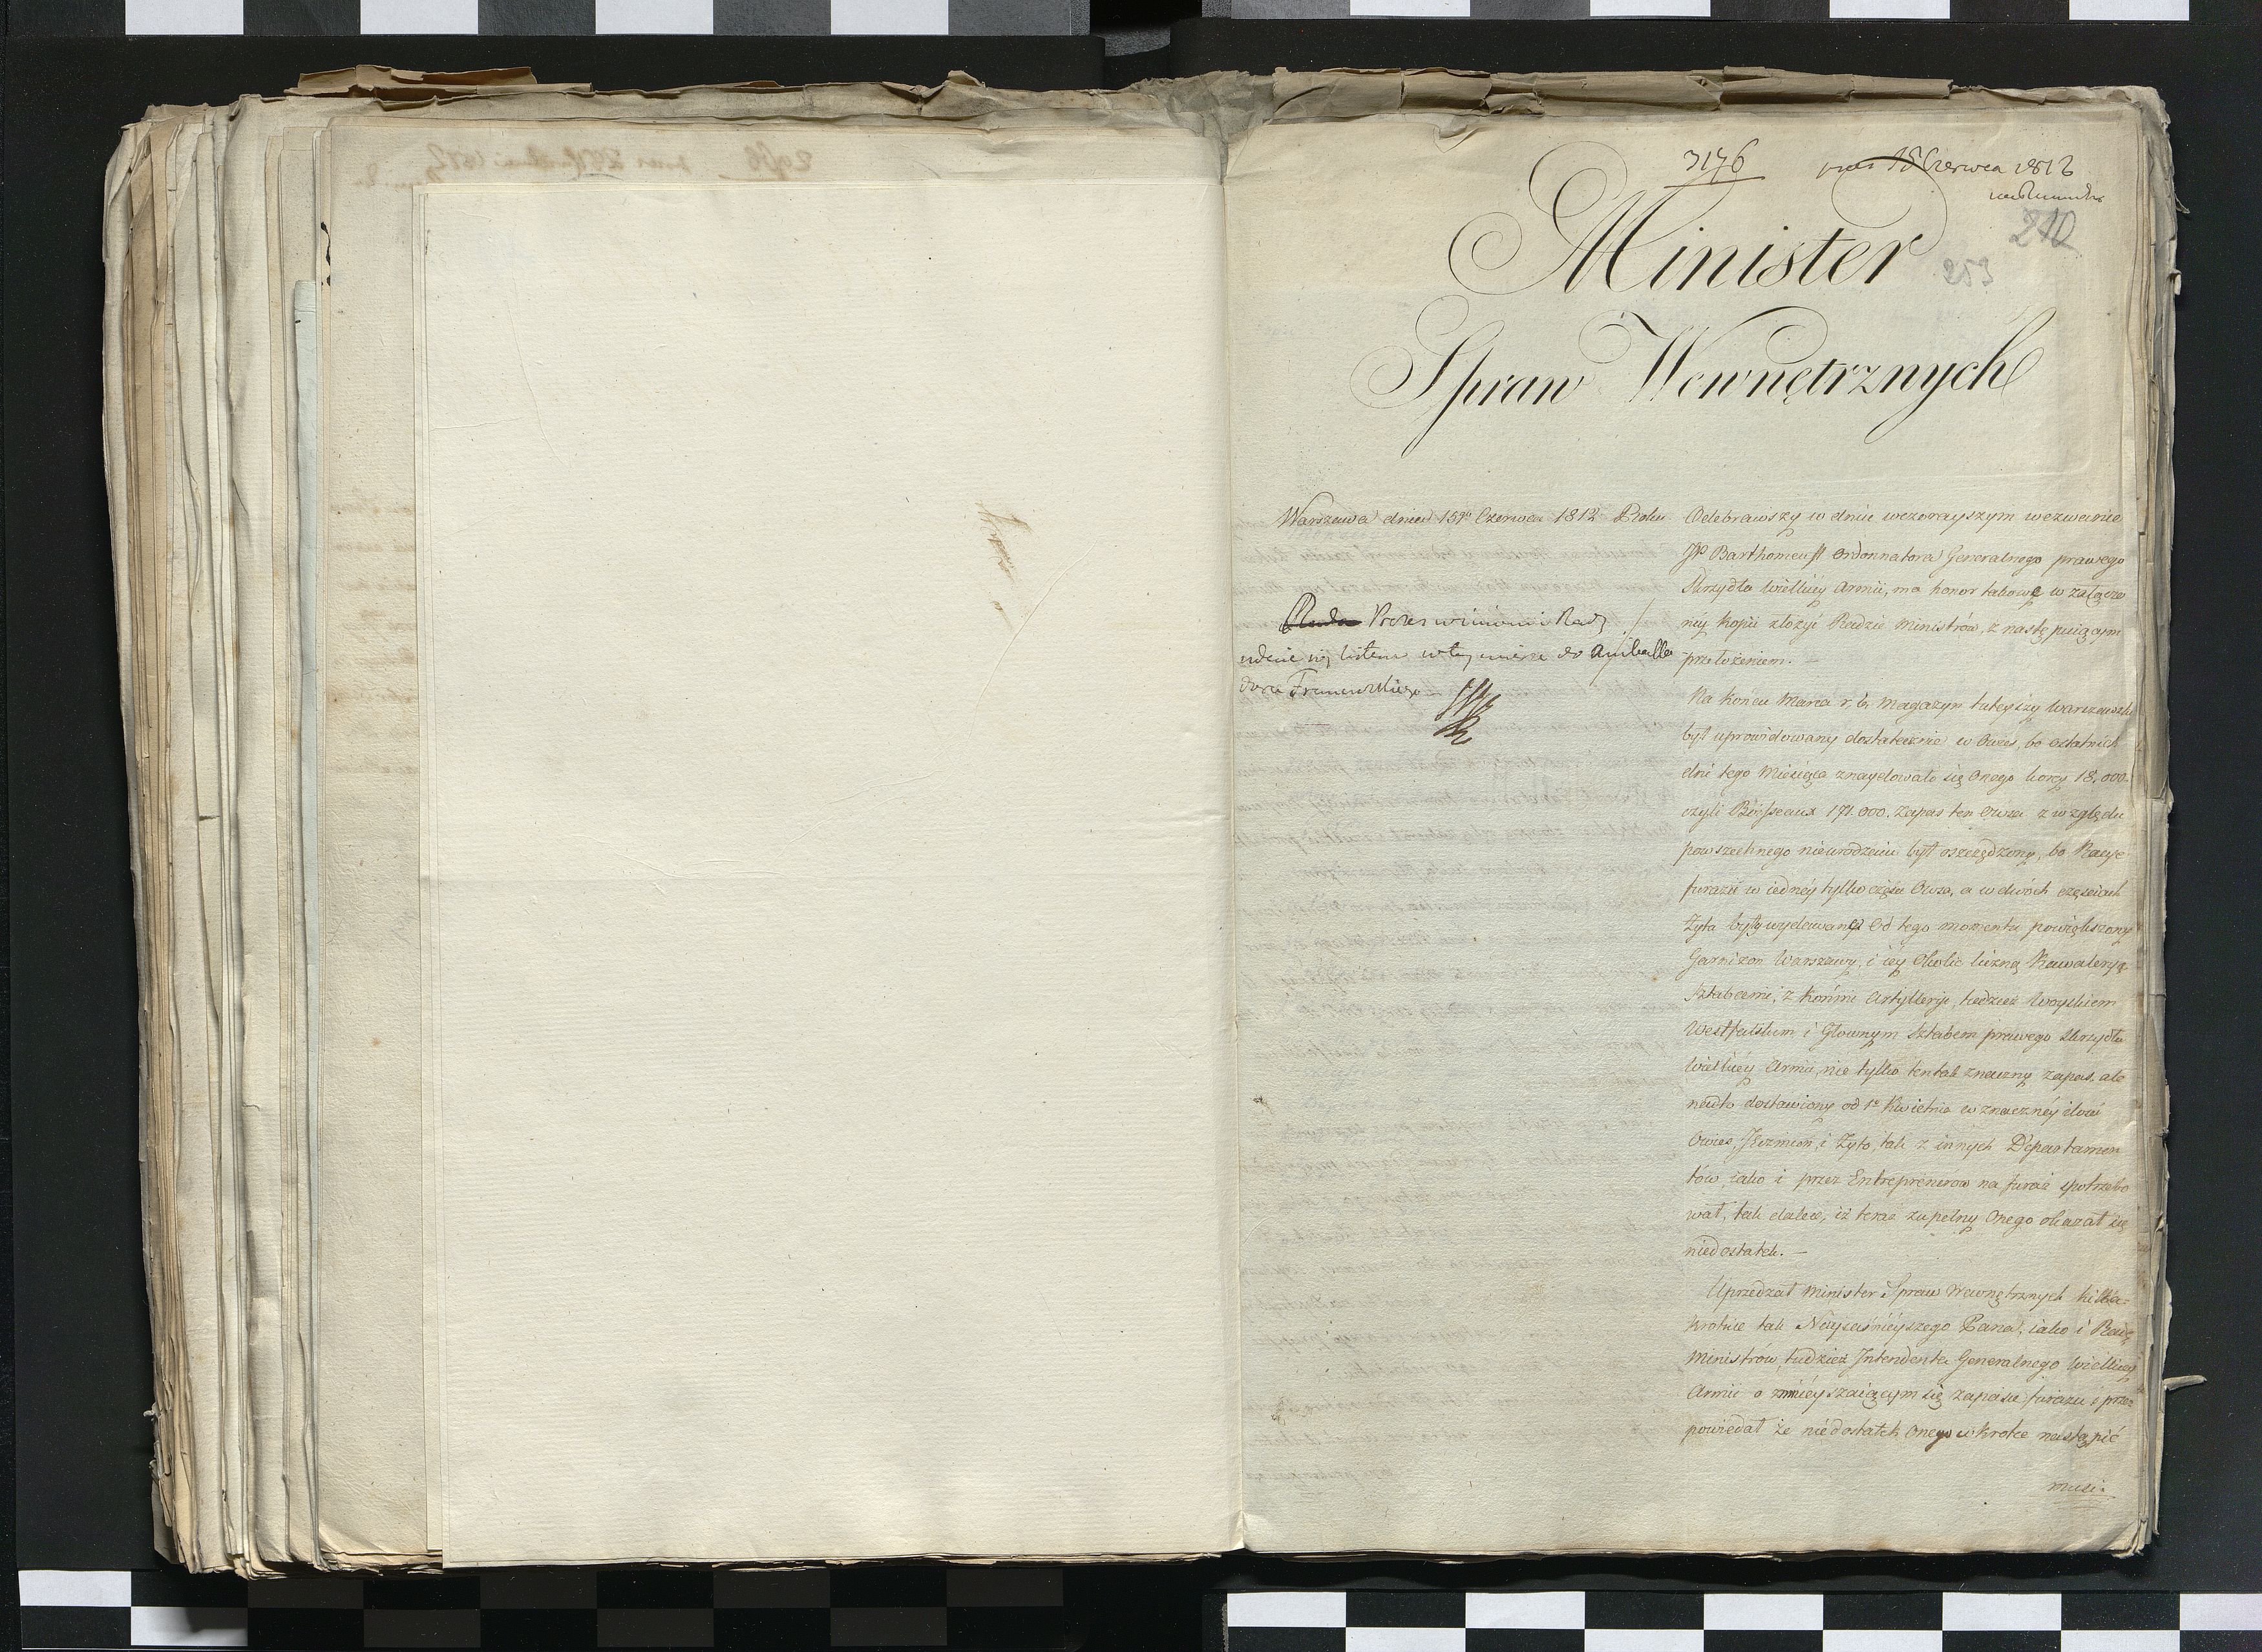 3176
15 Czerwca 1812
210
253
Minister
Spraw Wewnętrznych
Warszawa dnia 15go Czerwca 1812 Roku
Prezes w imieniu Rady
uda się listem w tey mierze do Ambassa
dora Francuzkiego
Odebrawszy w dniu wczorayszym wezwanie
JP Barthomeuff Ordonnatora Generalnego prawego
Skrzydła Wielkiey Armii, ma honor takowe w załączo
ney kopii złożyć Radzie Ministrów, z następuiącym
przełożeniem. —
Na końcu Marca r. b. Magazyn tuteyszy Warszawski
był uprowidowany dostatecznie w Owies, bo ostatnich
dni tego Miesiąca znaydowało się Onego korcy 18,000.
czyli Boisseaux 171.000. Zapas ten Owsa z względu
powszechnego nieurodzaiu był oszczędzony, bo Racye
furażu w iedney tylko części Owsa, a w dwóch częściach
Żyta były wydawane Od tego momentu powiększony
Garnizon Warszawy, i iey Okolic liczną Kawaleryą
Sztabami, z końmi Artylleryi, tudzież Woyskiem
Westfalskim i Głownym Sztabem prawego Skrzydła
Wielkiey Armii, nie tylko ten tak znaczny zapas, ale
nadto dostawiony od 1o Kwietnia w znaczney ilości
Owies, Jęczmień, i Żyto, tak z innych Departamen
tów, iako i przez Entreprenerów na furaż spotrzebo
wał, tak dalece, iż teraz zupełny Onego okazał się
niedostatek. —
Uprzedzał Minister Spraw Wewnętrznych kilka-
krotnie tak Nayiaśnieyszego Pana, iako i Radę
Ministrów, tudzież Intendenta Generalnego Wielkiey
Armii o zmnieyszaiącym się zapasie furażu i prze
powiedał że niedostatek Onego w krotce nastąpić
musi.